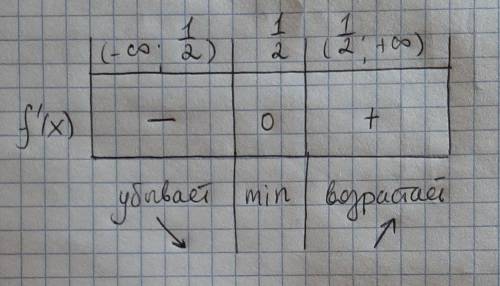 (-∞; 1/2) 1/2 (1/2; +∞)
f'(x) — 0 +
убывает min возрастает
↘ ↗